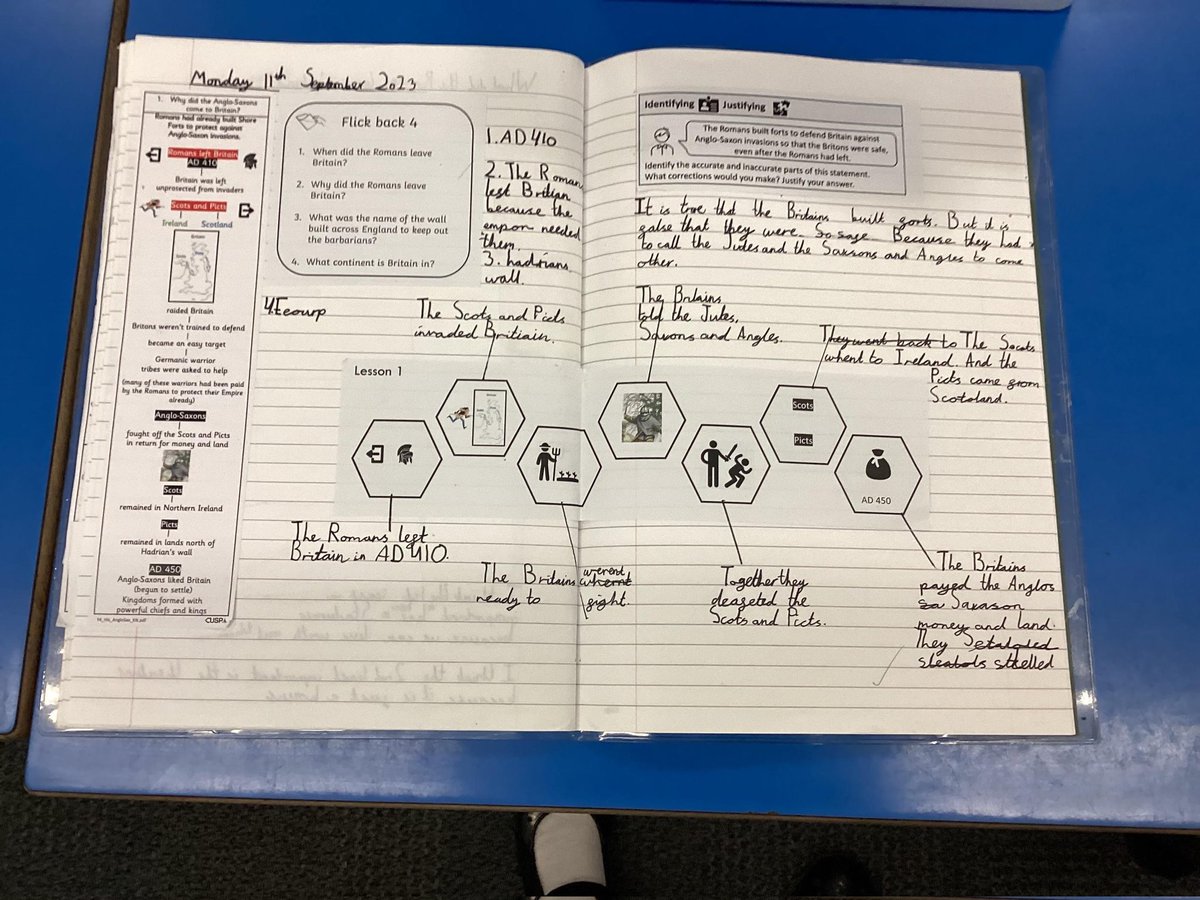 Monday 11th September 2023
1. Why did the Anglo-Saxons
come to Britain?
Romans had already built Shore
Forts to protect against
Anglo-Saxon invasions.
Romans left Britain
AD 410
Britain was left
unprotected from invaders
Scots and Picts
Ireland Scotland
raided Britain
Britons weren't trained to defend
became an easy target
Germanic warrior
tribes were asked to help
(many of these warriors had been paid
by the Romans to protect their Empire
already)
Anglo-Saxons
fought off the Scots and Picts
in return for money and land
Scots
remained in Northern Ireland
Picts
remained in lands north of
Hadrian's wall
AD 450
Anglo-Saxons liked Britain
(begun to settle)
Kingdoms formed with
powerful chiefs and kings
CUSP
Flick back 4
1. When did the Romans leave
Britain?
2. Why did the Romans leave
Britain?
3. What was the name of the wall
built across England to keep out
the barbarians?
4. What continent is Britain in?
1. AD 410
2. The Roman
left Britian
because the
empon needed
them.
3. hadrians
wall.
4. Eeourp
The Scots and Picts
invaded Britiain.
Lesson 1
The Romans left
Britain in AD 410.
The Britains werend whernt
ready to fight.
Identifying Justifying
The Romans built forts to defend Britain against
Anglo-Saxon invasions so that the Britons were safe,
even after the Romans had left.
Identify the accurate and inaccurate parts of this statement.
What corrections would you make? Justify your answer.
It is troe that the Britains built forts. But it is
false that they were. So safe. Because they had
to call the Jutes and the Saxsons and Angles to come
other.
The Britains
told the Jutes,
Saxons and Angles.
They went back to The Scots
whent to Ireland. And the
Picts came from
Scotoland.
Scots
Picts
AD 450
Together they
defeated the
Scots and Picts.
The Britains
payed the Anglos
sa Saxason
money and land.
They
sttelled